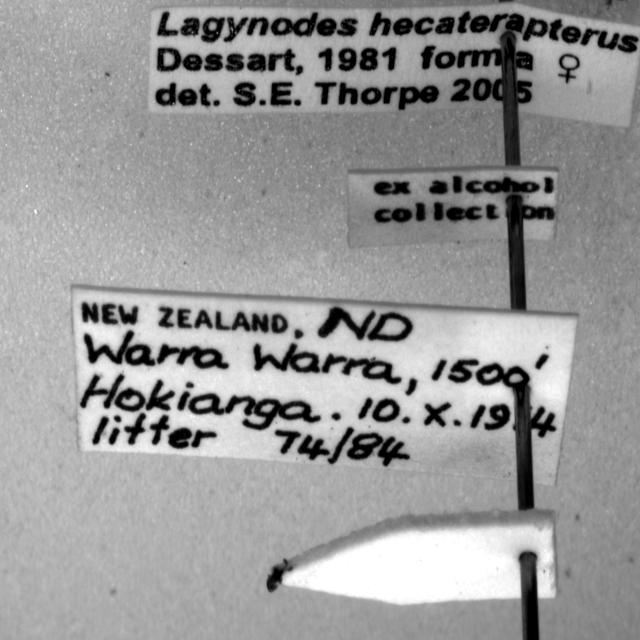 Lagynodes hecaterapterus
Dessart, 1981 forma ♀
det. S.E. Thorpe 2005
ex alcohol
collection
NEW ZEALAND. ND
Warra Warra, 1500'
Hokianga. 10. X. 1974
litter 74/84